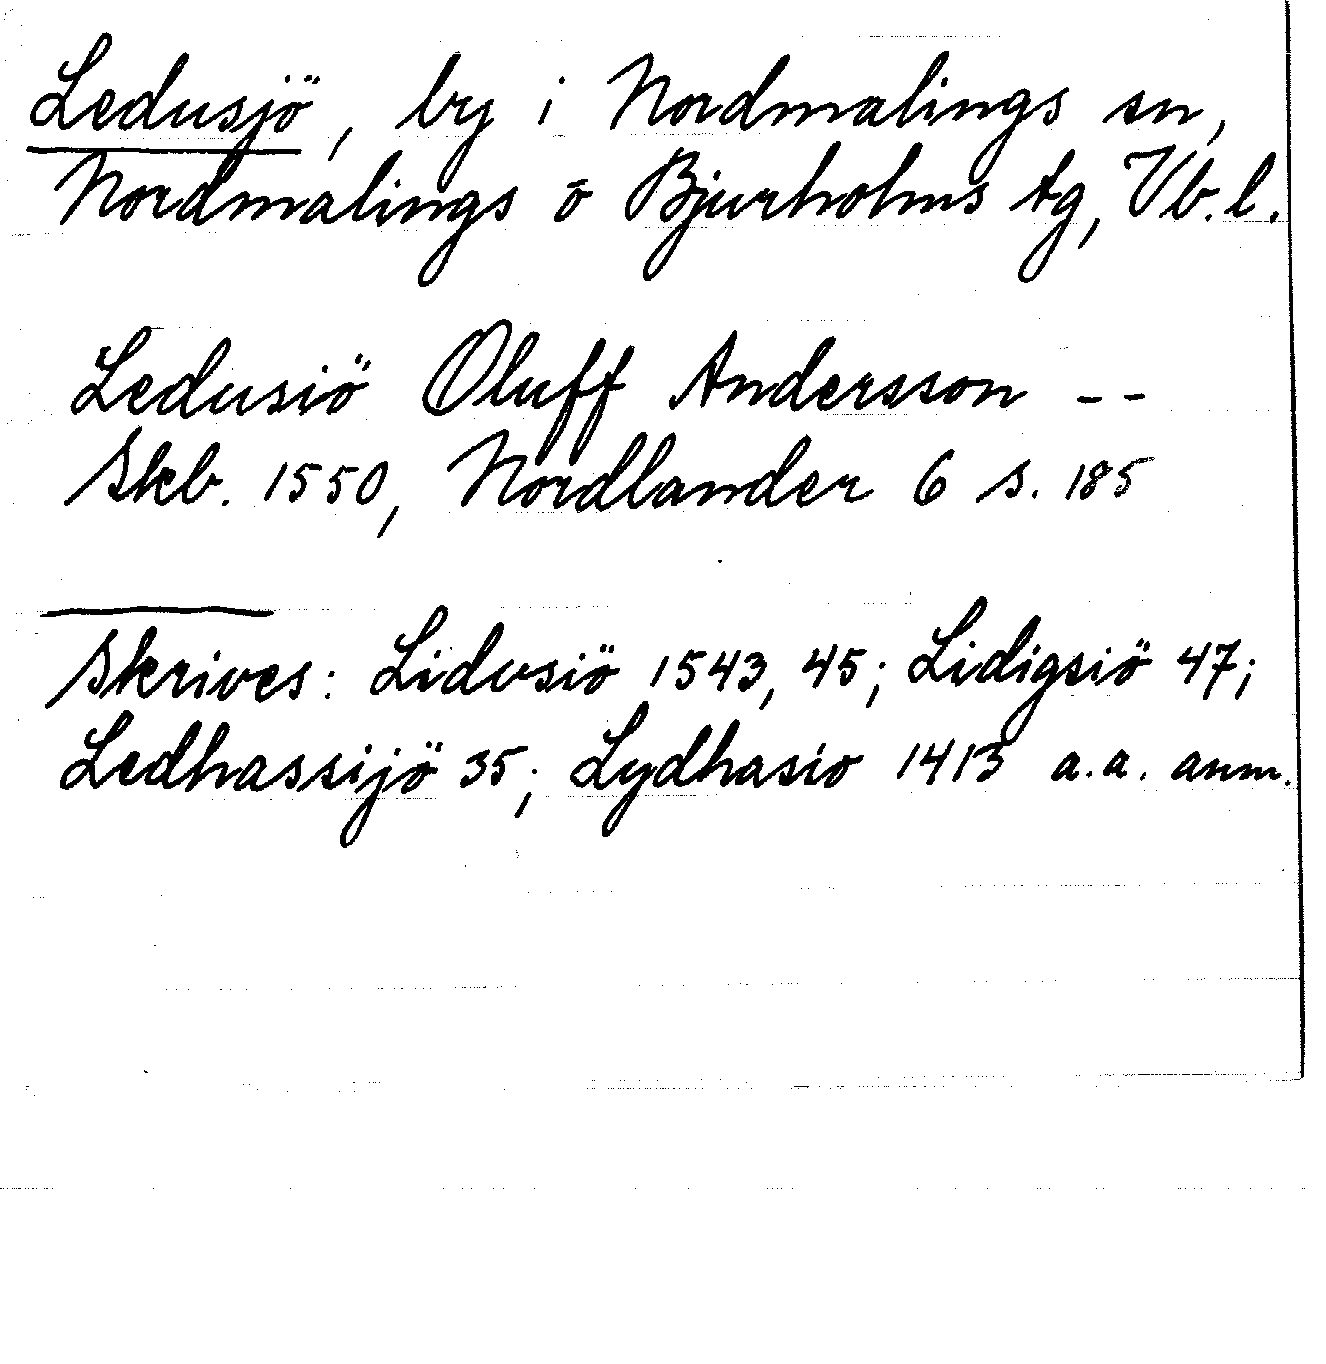 Ledusjö, by i Nordmalings sn,
Nordmalings o Bjurholms tg, Vb.l.
Ledusiö Oluff Andersson --
Skb. 1550, Nordlander 6 s. 185
Skrives: Lidusiö 1543, 45; Lidigsiö 47;
Ledhassijö 35; Lydhasio 1413 a.a. anm.